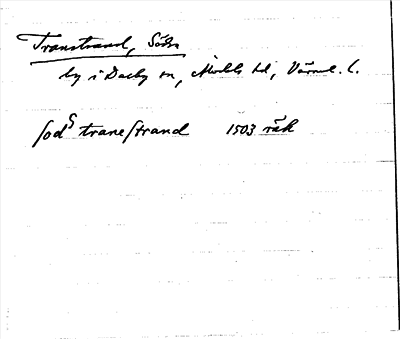 Transtrand, Södra
by i Dalby sn, Älvdals hd, Värml. l.
sodͬ tranestrand 1503 räk